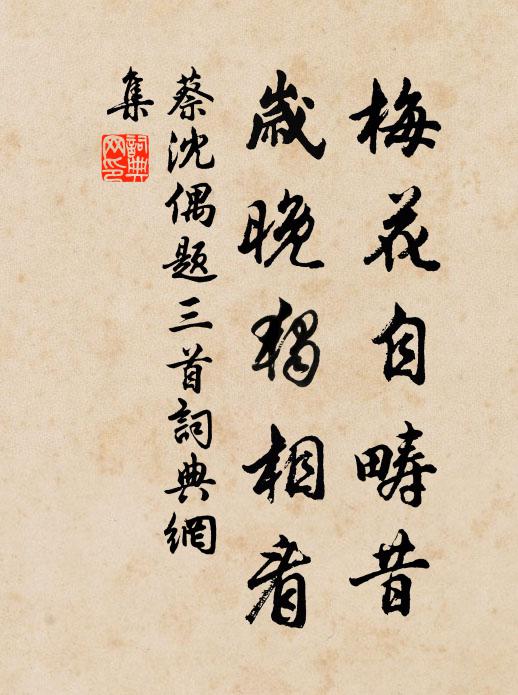 梅花自畴昔
歲晚獨相看
蔡沈偶题三首詞典網
集
詞典網印